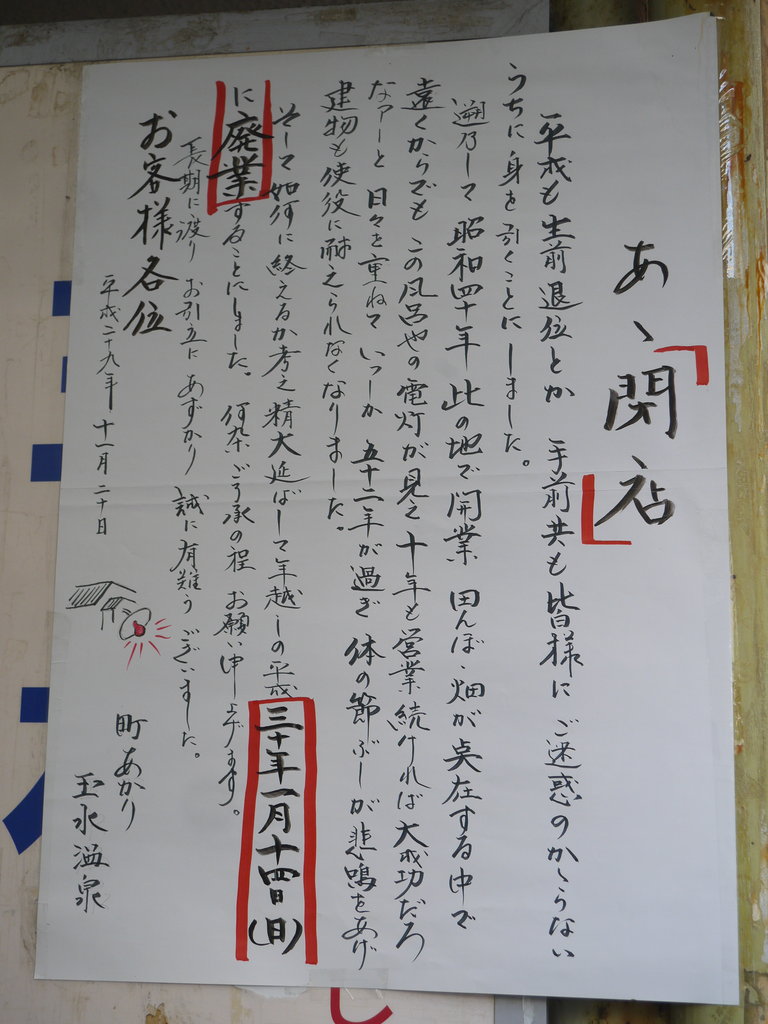 あゝ「閉店」
平成も生前退位とか 手前共も皆様にご迷惑のかゝらない
うちに身を引くことにしました。
遡乃して昭和四十年此の地で開業 田んぼ・畑が点在する中で
遠くからでもこの風呂やの電灯が見え十年も営業続ければ大成功だろ
なァーと日々を重ねていつしか五十二年が過ぎ体の節ぶしが悲鳴をあげ
建物も使役に耐えられなくなりました。
そして如何に終えるか考え精大延ばして年越しの平成三十年一月十四日(日)
に廃業することにしました。何卒ご了承の程お願い申し上げます。
長期に渡りお引立にあずかり誠に有難うございました。
お客様各位
平成二十九年十一月二十日
町あかり
玉水温泉
し